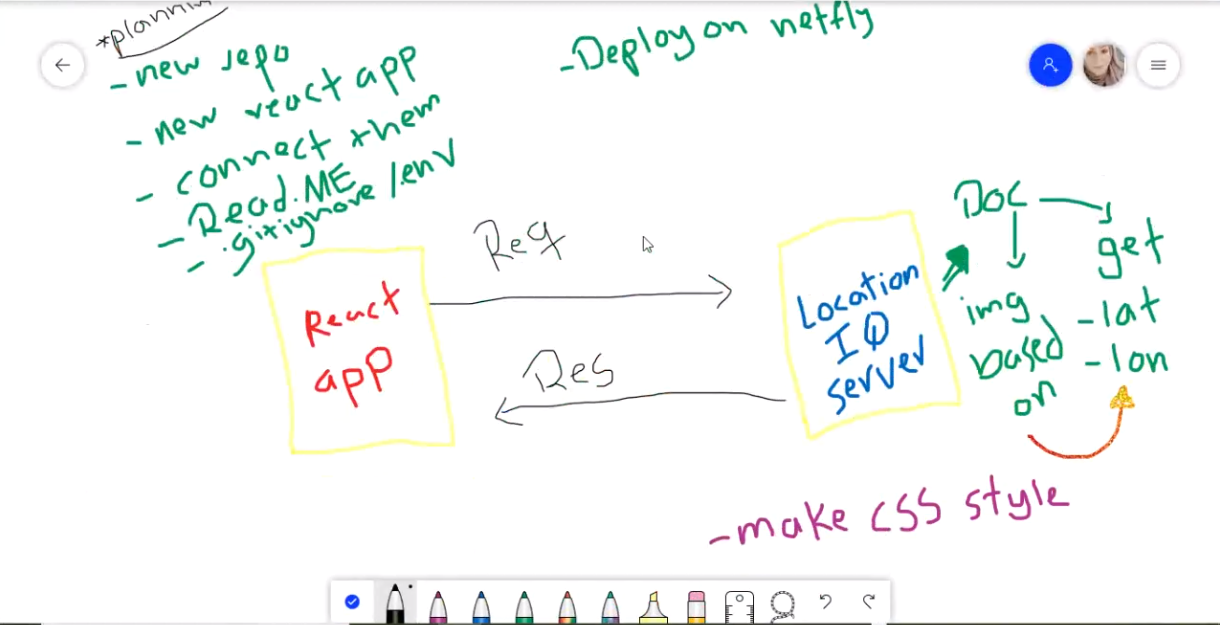 *planning
- new repo
- new react app
- connect them
- Read.ME
- .gitignore /.env
-Deploy on netfly
React
app
Req
Res
Location
IQ
server
Doc
img
based
on
get
-lat
-lon
-make CSS style